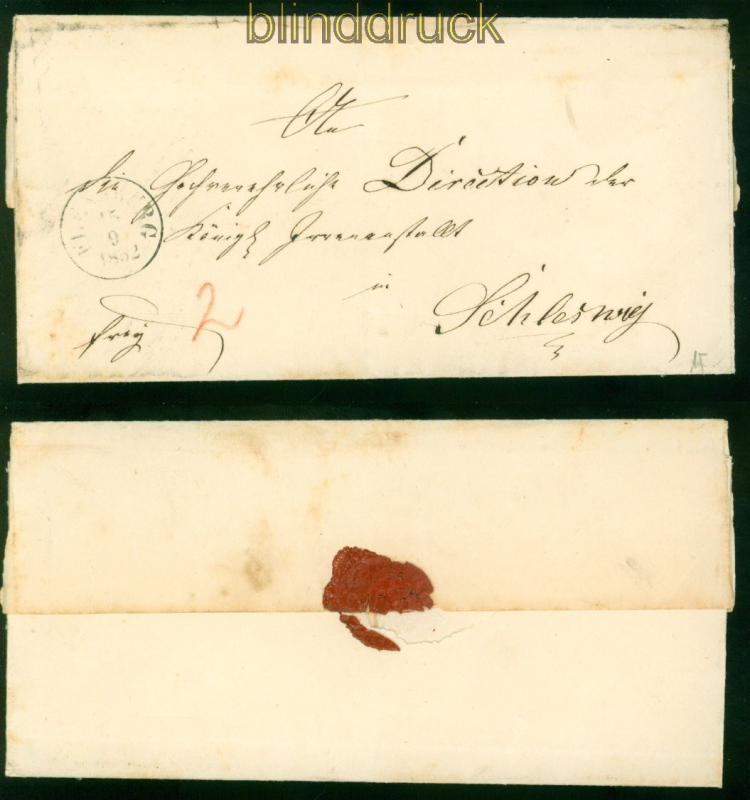 blinddruck
An
die Hochverehrliche Direction der
Königl Irrenanstallt
in
Schleswig
FLENSBURG
15
9
1852
frey
2